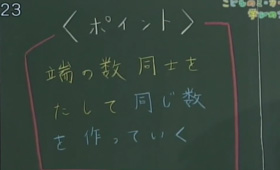 23
〈ポイント〉
端の数同士を
たして同じ数
を作っていく